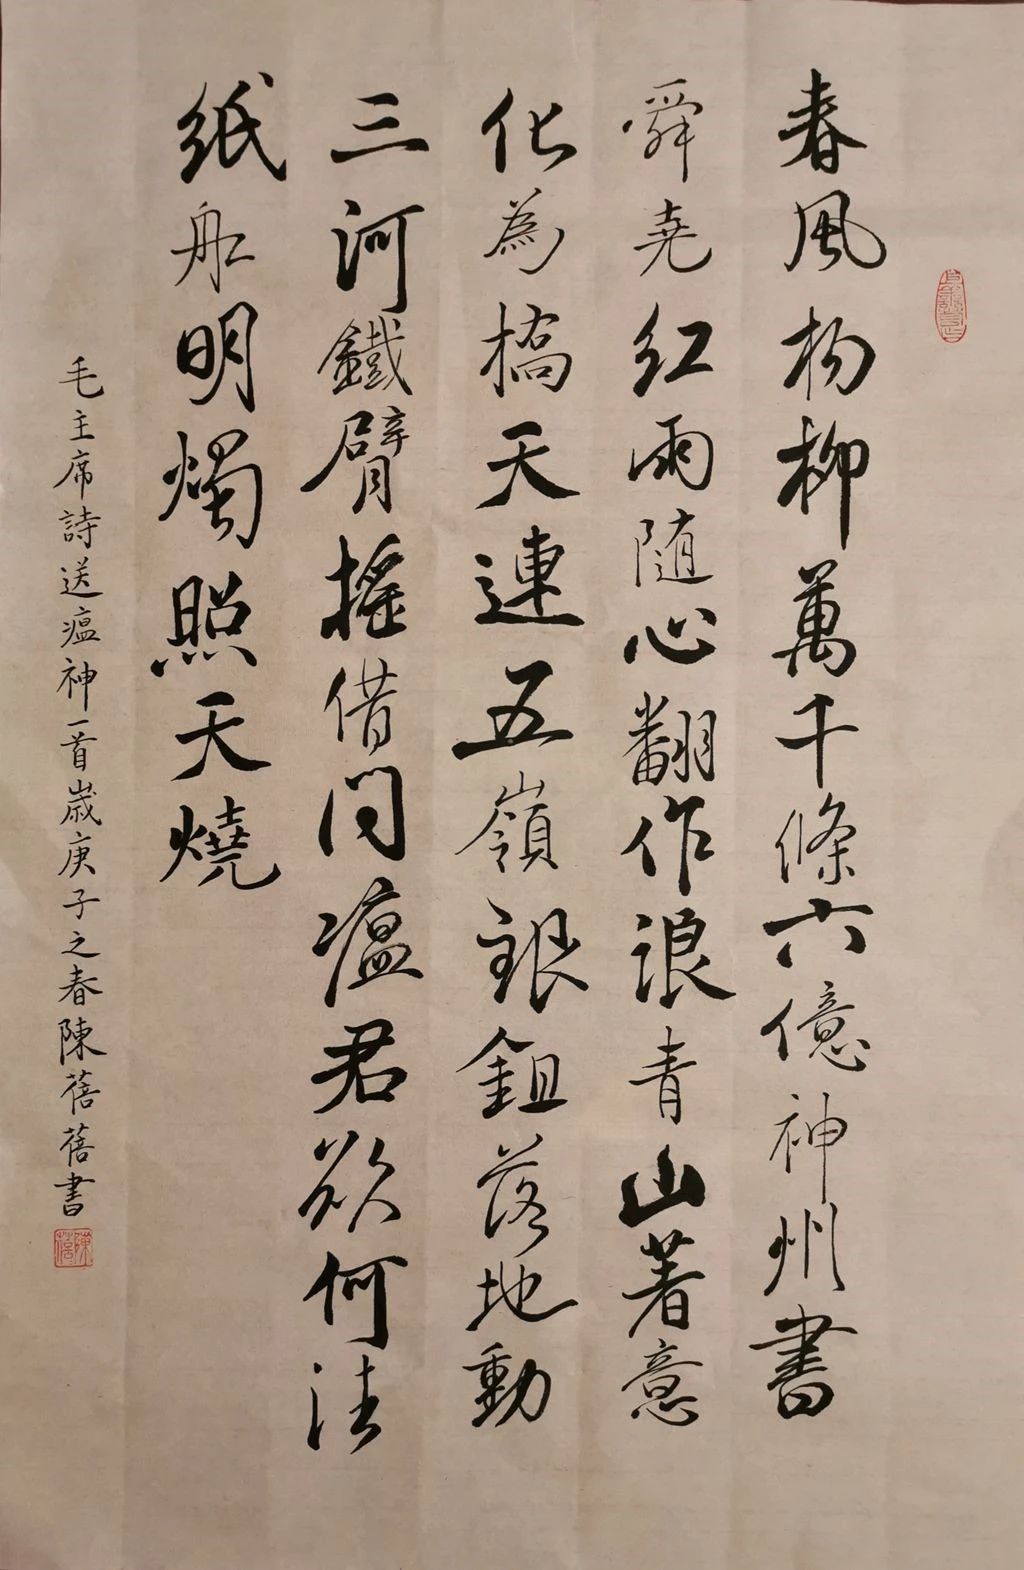 春風楊柳萬千條六億神州書
舜堯紅雨随心翻作浪青山著意
化為橋天連五嶺銀鉏落地動
三河鐵臂搖借問瘟君欲何往
紙船明燭照天燒
毛主席詩送瘟神一首歲庚子之春陳蓓蓓書